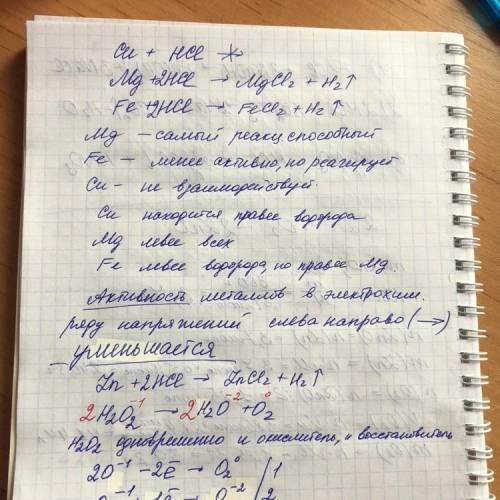 Cu + HCl ↛
Mg + 2HCl → MgCl₂ + H₂↑
Fe + 2HCl → FeCl₂ + H₂↑
Mg – самый реакц. способный
Fe – менее активно, но реагирует
Cu – не взаимодействует.
Cu находится правее водорода
Mg левее всех
Fe левее водорода, но правее Mg.
Активность металлов в электрохим.
ряду напряжений слева направо (→)
уменьшается
Zn + 2HCl → ZnCl₂ + H₂↑
2H₂O₂⁻¹ → 2H₂O⁻² + O₂⁰
H₂O₂ одновременно и окислитель, и восстановитель
2O⁻¹ – 2ē → O₂⁰ | 1